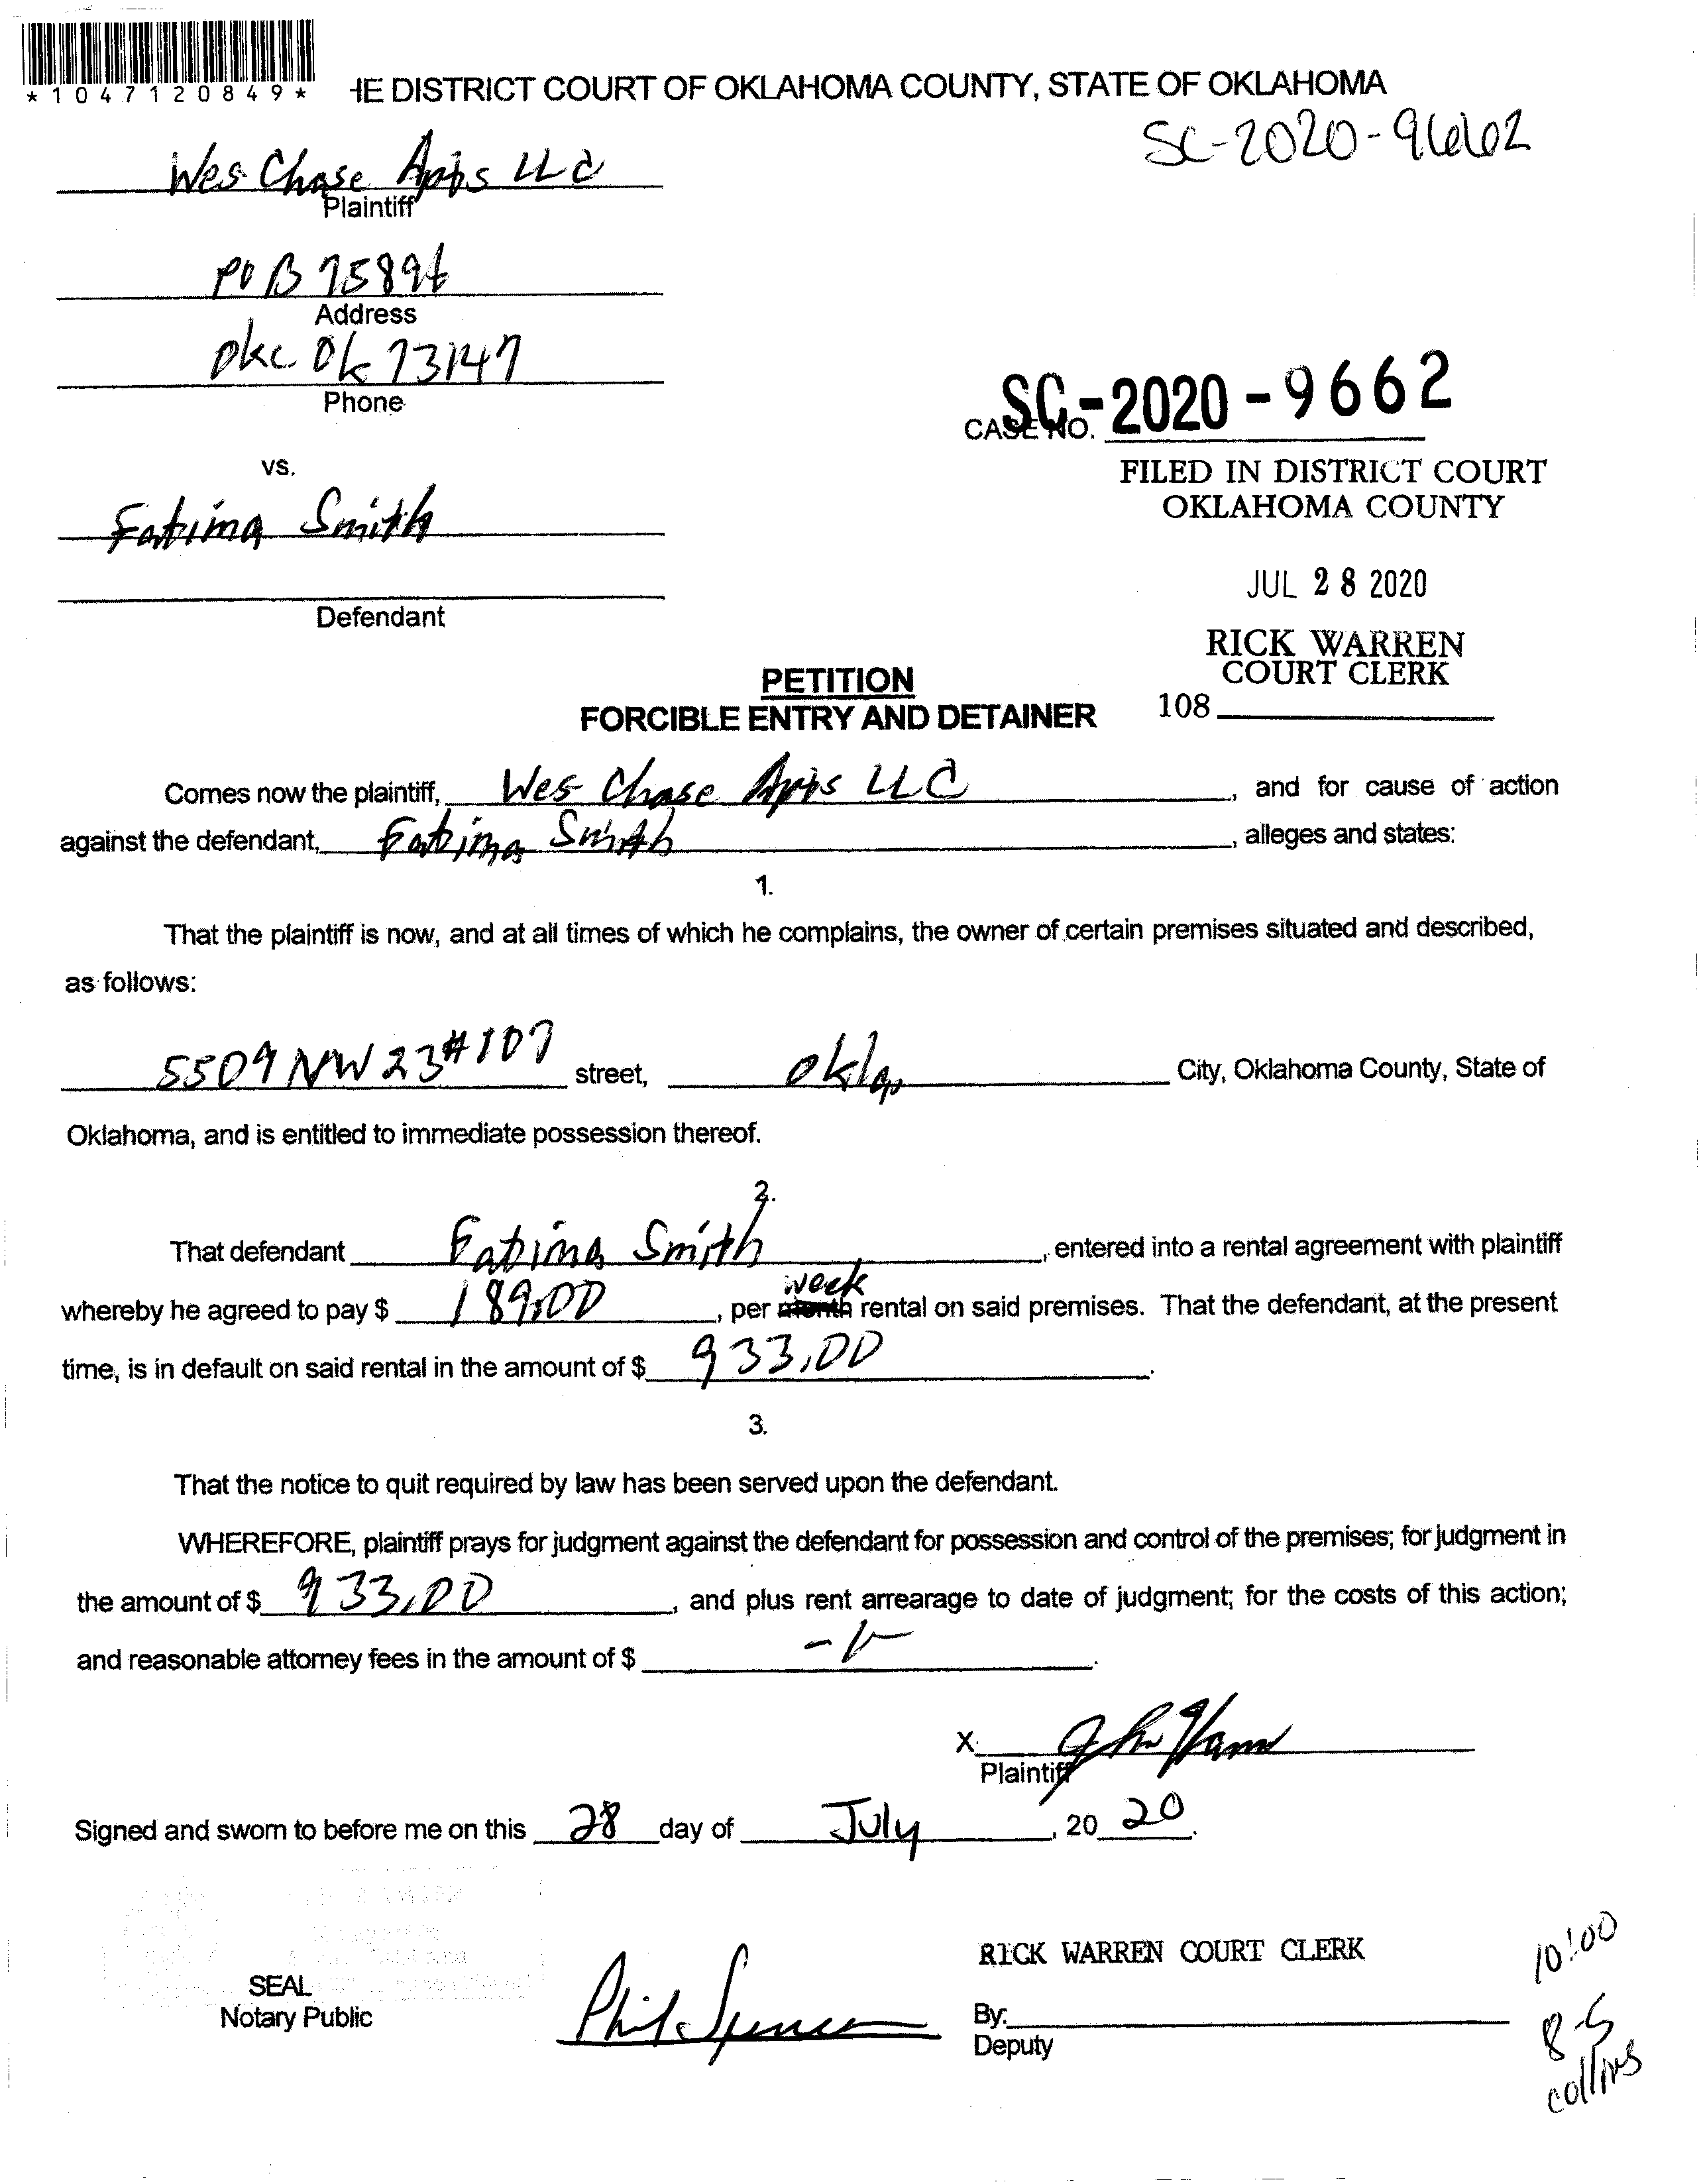 *1047120849*
HE DISTRICT COURT OF OKLAHOMA COUNTY, STATE OF OKLAHOMA
SC-2020-9662
Wes Chase Apts LLC
Plaintiff
POB 75896
Address
Okc Ok 73147
Phone
SC-2020-9662
CASE NO.
vs.
FILED IN DISTRICT COURT
OKLAHOMA COUNTY
Fatima Smith
JUL 28 2020
Defendant
RICK WARREN
COURT CLERK
PETITION
108
FORCIBLE ENTRY AND DETAINER
Comes now the plaintiff, Wes Chase Apts LLC, and for cause of action
against the defendant, Fatima Smith, alleges and states:
1.
That the plaintiff is now, and at all times of which he complains, the owner of certain premises situated and described,
as follows:
5509 NW 23 #107 street, okla, City, Oklahoma County, State of
Oklahoma, and is entitled to immediate possession thereof.
2.
That defendant Fatima Smith, entered into a rental agreement with plaintiff
week
whereby he agreed to pay $ 189.00, per month rental on said premises. That the defendant, at the present
time, is in default on said rental in the amount of $ 933.00.
3.
That the notice to quit required by law has been served upon the defendant.
WHEREFORE, plaintiff prays for judgment against the defendant for possession and control of the premises; for judgment in
the amount of $ 933.00, and plus rent arrearage to date of judgment; for the costs of this action;
and reasonable attorney fees in the amount of $
X.
Plaintiff
Signed and sworn to before me on this 28 day of July, 20 20.
RICK WARREN COURT CLERK
10:00
SEAL
Notary Public
Phil Spencer
By:
Deputy
8-5
collins